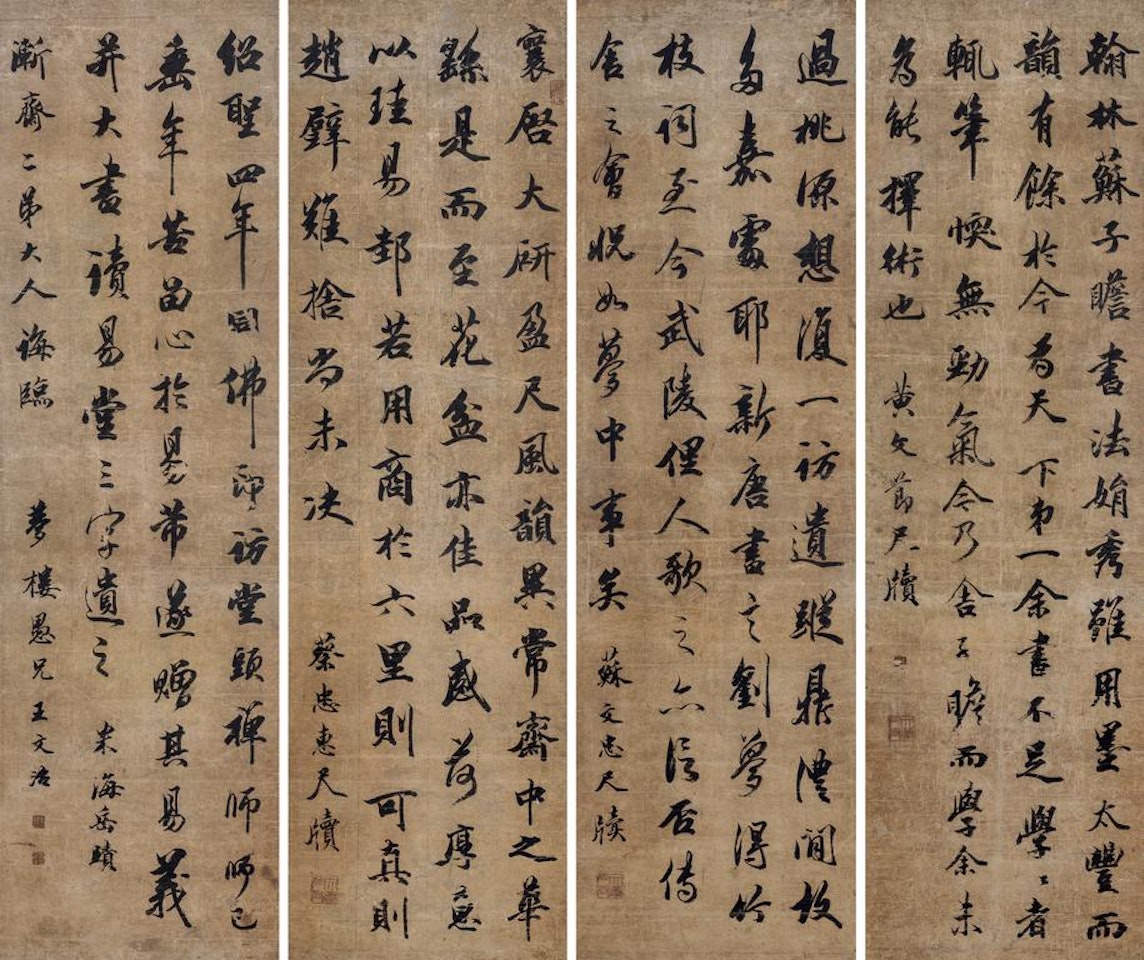 翰林蘇子瞻書法娟秀雖用墨太豐而
韻有餘於今為天下第一余書不足學〻者
輒筆愞無勁氣今乃舍子瞻而學余未
為能擇術也 黃文節尺牘
過桃源想復一訪遺蹤鼎澧間故
多嘉處耶新唐書言劉夢得竹
枝詞至今武陵俚人歌之亦信否傳
舍之會怳如夢中事矣 蘇文忠尺牘
襄啟大研盈尺風韻異常齋中之華
繇是而至花盆亦佳品感荷厚意
以珪易邽若用商於六里則可真則
趙璧難捨尚未決 蔡忠惠尺牘
紹聖四年同佛印訪堂頭禪師師已
垂年甚留心於易芾遂贈其易義
并大書讀易堂三字遺之 米海岳蹟
漸齋二弟大人誨臨 夢樓愚兄王文治